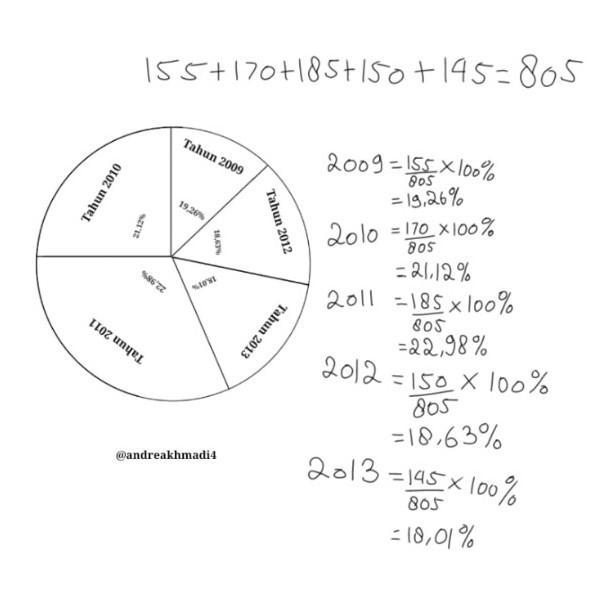 155+170+185+150+145=805
Tahun 2009
19,26%
Tahun 2010
21,12%
Tahun 2012
18,63%
Tahun 2011
22,98%
Tahun 2013
18,01%
@andreakhmadi4
2009 = 155/805 × 100%
= 19,26%
2010 = 170/805 × 100%
= 21,12%
2011 = 185/805 × 100%
= 22,98%
2012 = 150/805 × 100%
= 18,63%
2013 = 145/805 × 100%
= 18,01%